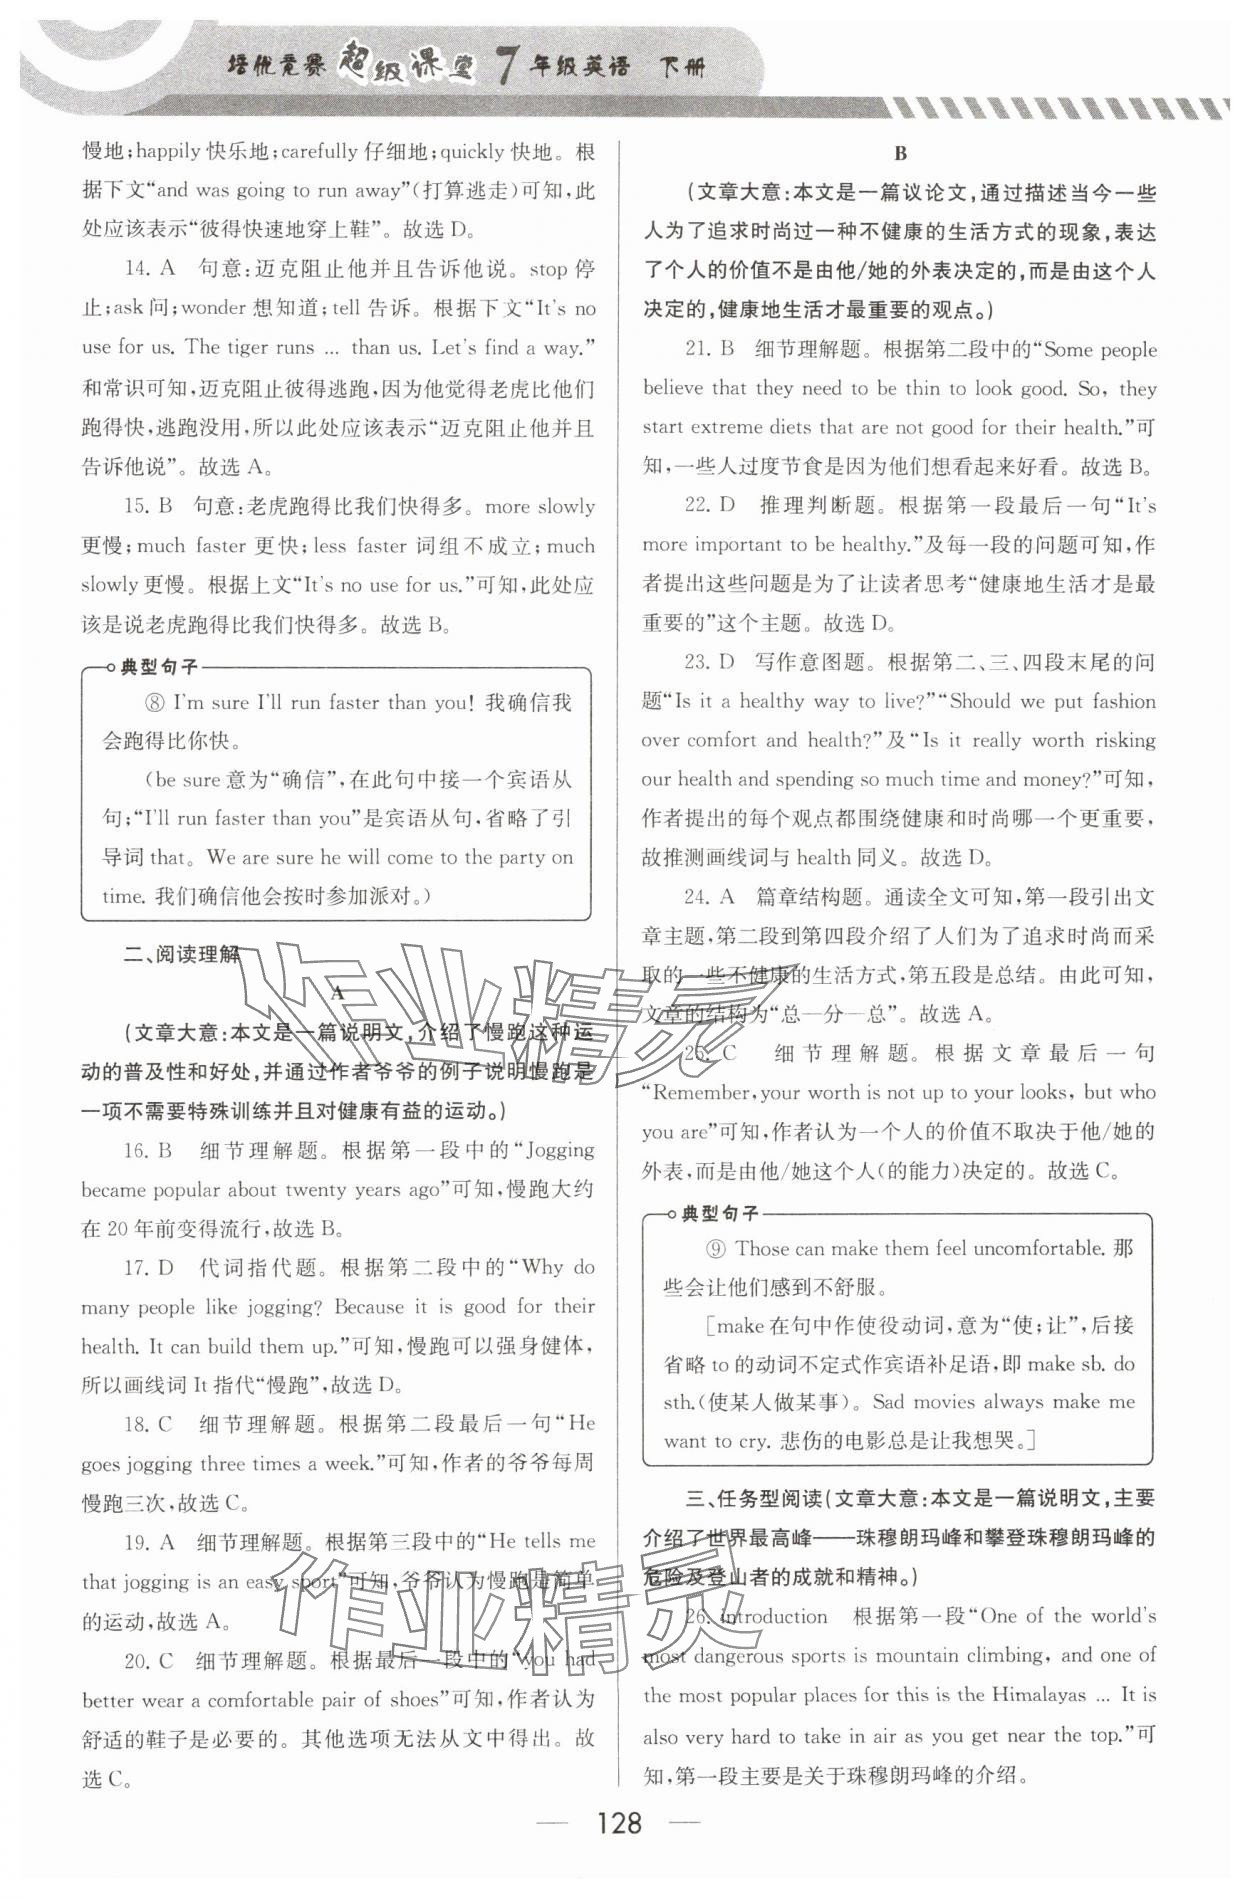 培优竞赛 超级课堂 7年级英语 下册
慢地;happily 快乐地;carefully 仔细地;quickly 快地。根
据下文“and was going to run away”(打算逃走)可知,此
处应该表示“彼得快速地穿上鞋”。故选 D。
14. A 句意:迈克阻止他并且告诉他说。stop 停
止;ask 问;wonder 想知道;tell 告诉。根据下文“It's no
use for us. The tiger runs … than us. Let's find a way.”
和常识可知,迈克阻止彼得逃跑,因为他觉得老虎比他们
跑得快,逃跑没用,所以此处应该表示“迈克阻止他并且
告诉他说”。故选 A。
15. B 句意:老虎跑得比我们快得多。more slowly
更慢;much faster 更快;less faster 词组不成立;much
slowly 更慢。根据上文“It's no use for us.”可知,此处应
该是说老虎跑得比我们快得多。故选 B。
典型句子
⑧ I'm sure I'll run faster than you! 我确信我
会跑得比你快。
(be sure 意为“确信”,在此句中接一个宾语从
句;“I'll run faster than you”是宾语从句,省略了引
导词 that。We are sure he will come to the party on
time. 我们确信他会按时参加派对。)
二、阅读理解
A
(文章大意:本文是一篇说明文,介绍了慢跑这种运
动的普及性和好处,并通过作者爷爷的例子说明慢跑是
一项不需要特殊训练并且对健康有益的运动。)
16. B 细节理解题。根据第一段中的“Jogging
became popular about twenty years ago”可知,慢跑大约
在 20 年前变得流行,故选 B。
17. D 代词指代题。根据第二段中的“Why do
many people like jogging? Because it is good for their
health. It can build them up.”可知,慢跑可以强身健体,
所以画线词 It 指代“慢跑”,故选 D。
18. C 细节理解题。根据第二段最后一句“He
goes jogging three times a week.”可知,作者的爷爷每周
慢跑三次,故选 C。
19. A 细节理解题。根据第三段中的“He tells me
that jogging is an easy sport”可知,爷爷认为慢跑是简单
的运动,故选 A。
20. C 细节理解题。根据最后一段中的“you had
better wear a comfortable pair of shoes”可知,作者认为
舒适的鞋子是必要的。其他选项无法从文中得出。故
选 C。
B
(文章大意:本文是一篇议论文,通过描述当今一些
人为了追求时尚过一种不健康的生活方式的现象,表达
了个人的价值不是由他/她的外表决定的,而是由这个人
决定的,健康地生活才最重要的观点。)
21. B 细节理解题。根据第二段中的“Some people
believe that they need to be thin to look good. So, they
start extreme diets that are not good for their health.”可
知,一些人过度节食是因为他们想看起来好看。故选 B。
22. D 推理判断题。根据第一段最后一句“It's
more important to be healthy.”及每一段的问题可知,作
者提出这些问题是为了让读者思考“健康地生活才是最
重要的”这个主题。故选 D。
23. D 写作意图题。根据第二、三、四段末尾的问
题“Is it a healthy way to live?”“Should we put fashion
over comfort and health?”及“Is it really worth risking
our health and spending so much time and money?”可知,
作者提出的每个观点都围绕健康和时尚哪一个更重要,
故推测画线词与 health 同义。故选 D。
24. A 篇章结构题。通读全文可知,第一段引出文
章主题,第二段到第四段介绍了人们为了追求时尚而采
取的一些不健康的生活方式,第五段是总结。由此可知,
文章的结构为“总—分—总”。故选 A。
25. C 细节理解题。根据文章最后一句
“Remember, your worth is not up to your looks, but who
you are”可知,作者认为一个人的价值不取决于他/她的
外表,而是由他/她这个人(的能力)决定的。故选 C。
典型句子
⑨ Those can make them feel uncomfortable. 那
些会让他们感到不舒服。
[make 在句中作使役动词,意为“使;让”,后接
省略 to 的动词不定式作宾语补足语,即 make sb. do
sth.(使某人做某事)。Sad movies always make me
want to cry. 悲伤的电影总是让我想哭。]
三、任务型阅读(文章大意:本文是一篇说明文,主要
介绍了世界最高峰——珠穆朗玛峰和攀登珠穆朗玛峰的
危险及登山者的成就和精神。)
26. introduction 根据第一段“One of the world's
most dangerous sports is mountain climbing, and one of
the most popular places for this is the Himalayas … It is
also very hard to take in air as you get near the top.”可
知,第一段主要是关于珠穆朗玛峰的介绍。
作业精灵
作业精灵
— 128 —